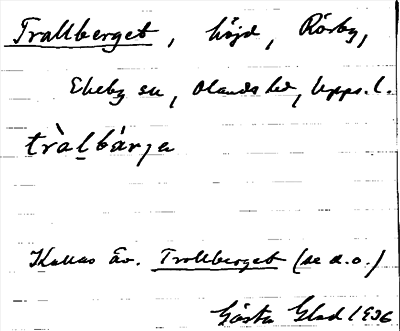 Trallberget, höjd, Rörby,
Ekeby sn, Olands hd, Upps. l.
tràlbárja
Kallas äv. Trollberget (se d.o.)
Gösta Glad 1936